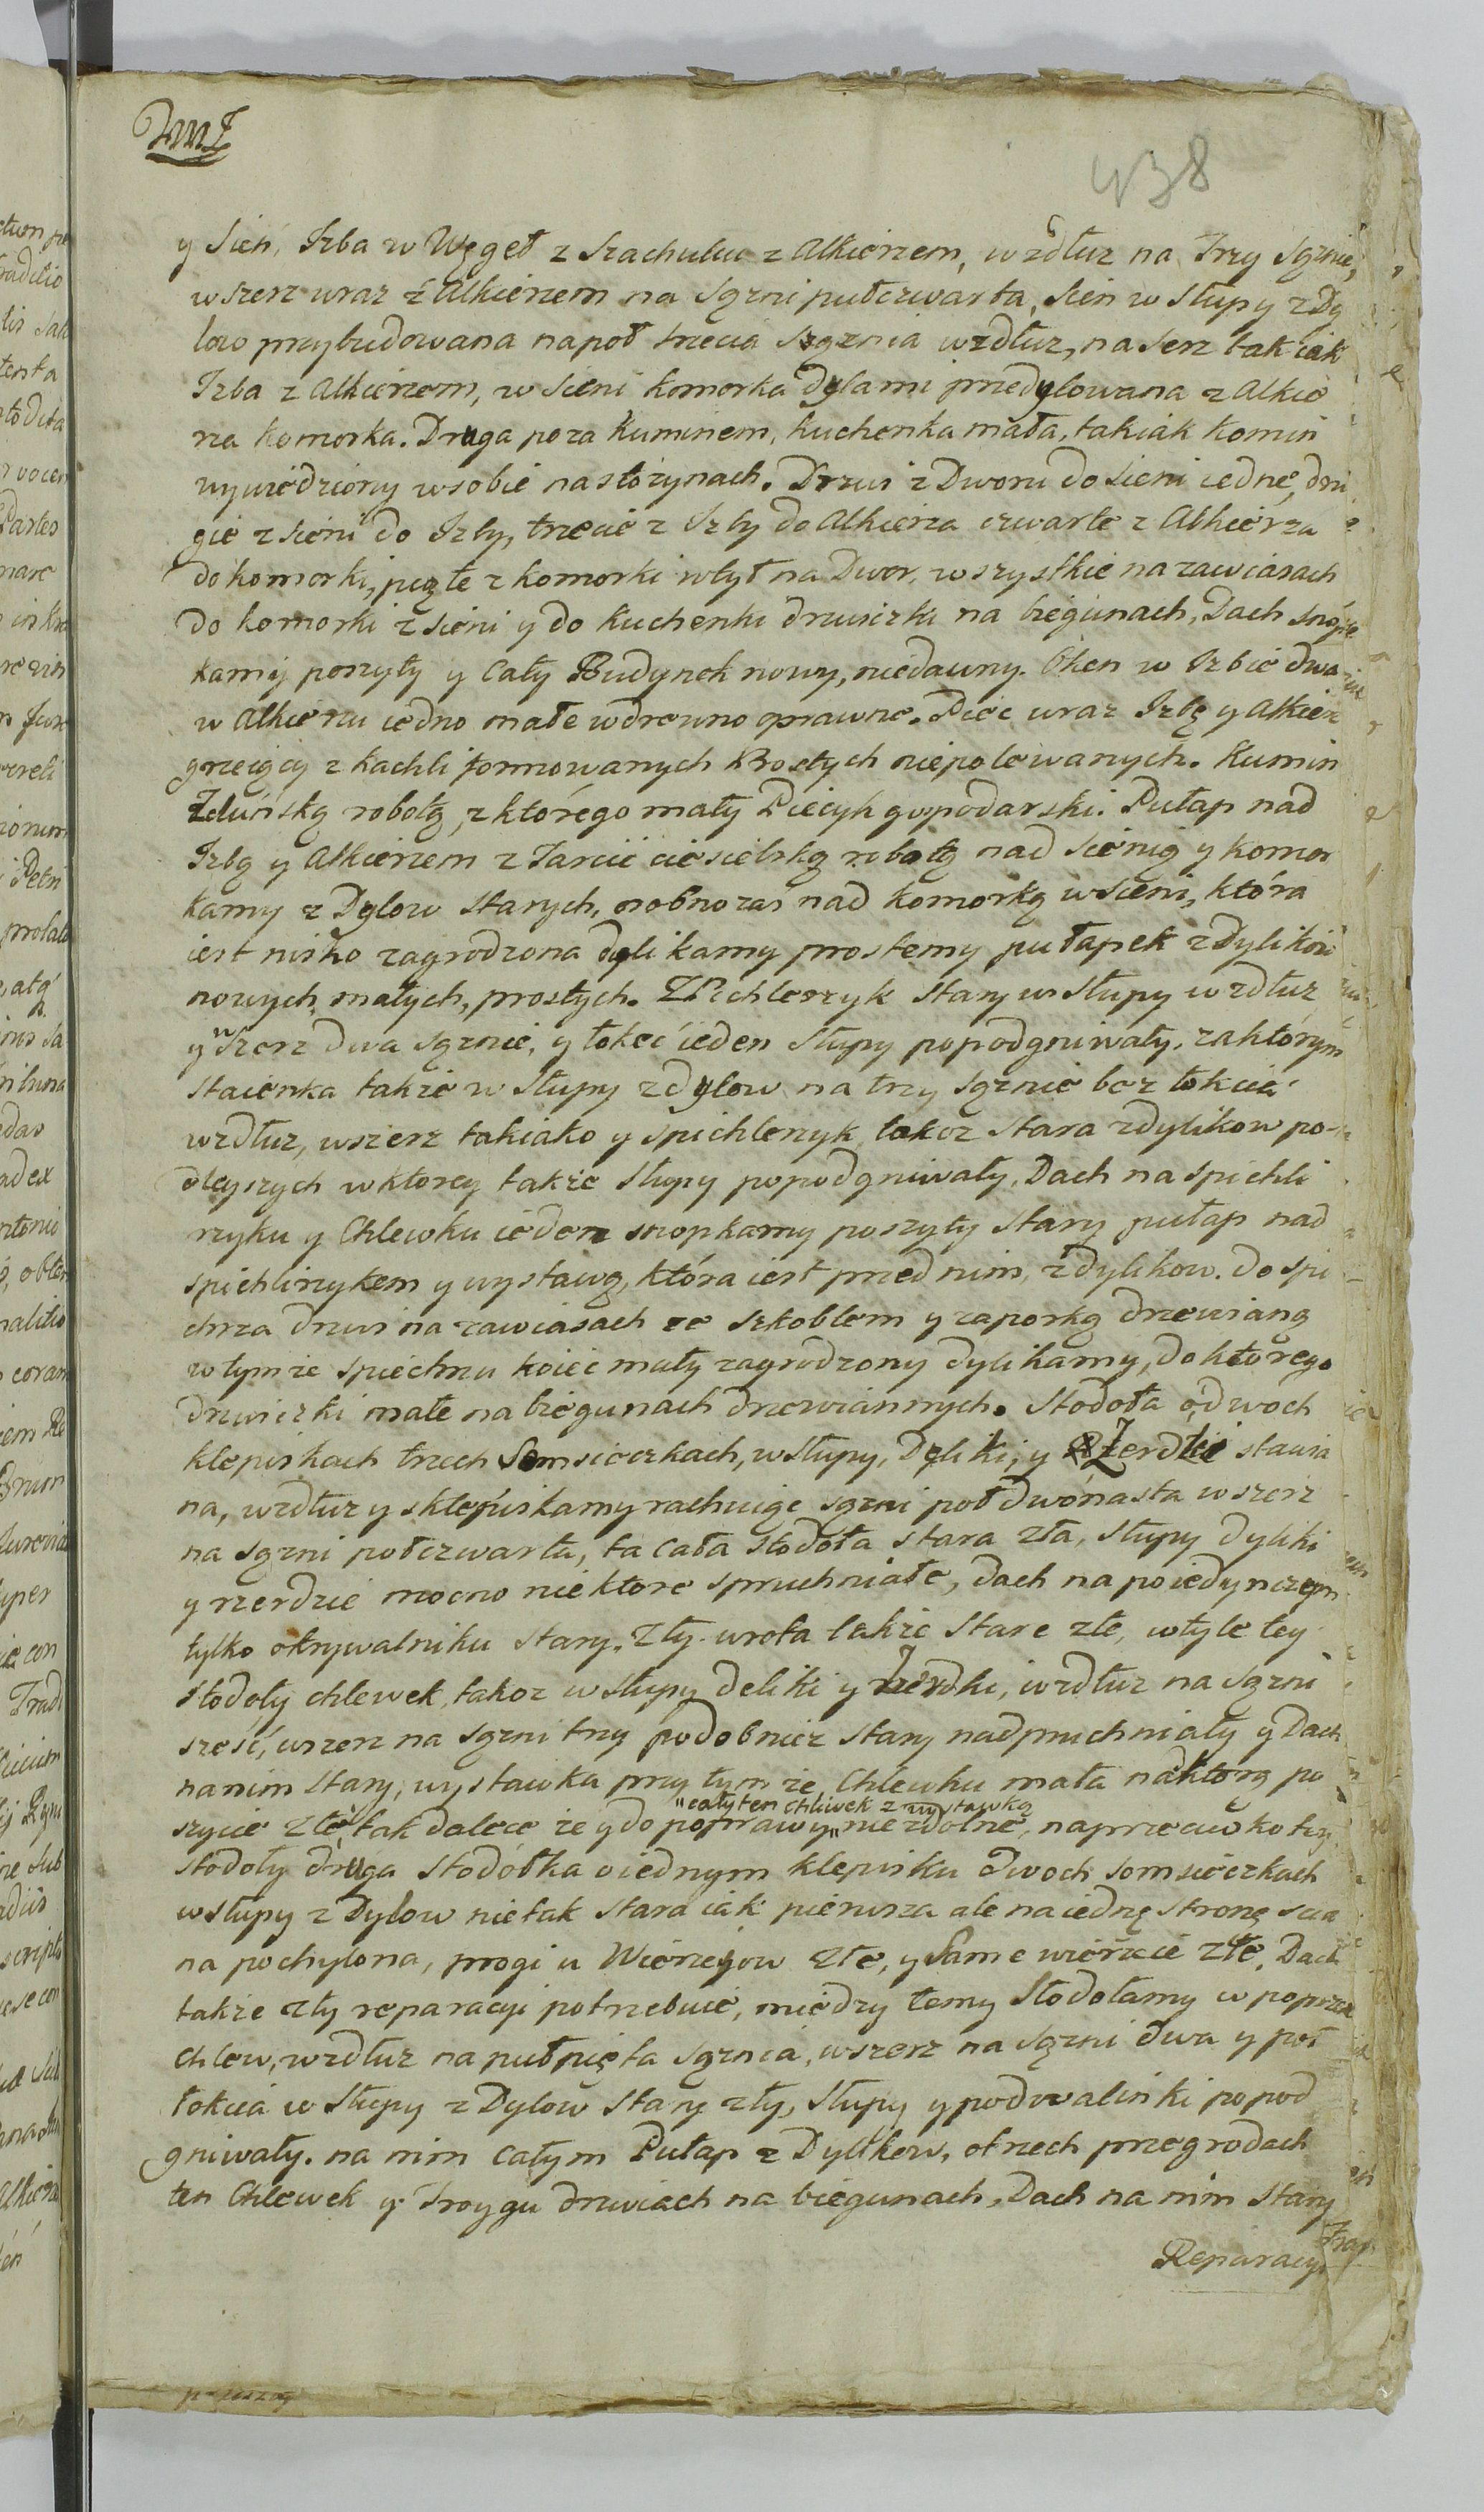 438
y Sień, Izba w Węgeł z Szachulcu z Alkierzem, wzdłuz na Trzy Sąznie,
wszerz wraz z Alkierzem na Sązni pułczwarta, Sień w Słupy z Dy
low przybudowana napoł trzecia Sząznia wzdłuz, na serz tak iak
Izba z Alkierzem, w Sieni komorka dylami przedylowana z Alkie
rza komorka. Druga poza Kuminem, kuchenka mała, takiak komin
wywiedziony wsobie na stozynach. Drzwi z Dworu do Sieni iedne, dru
gie z sieni do Izby, trzecie z Izby do Alkierza czwarte z Alkierza
do komorki, piąte z komorki wtył na Dwor, wszystkie na zawiasach
do komorki z sieni y do Kuchenki drzwiczki na biegunach, Dach snop
kamij poszyty y Cały Budynek nowy, niedawny. Okien w Izbie dwa
w Alkierzu iedno małe wdrewno oprawne. Piec wraz Izbę y Alkierz
grzeiący z kachli formowanych Prostych niepolewanych. Kumin
Zduńską robotą, z którego mały Piecyk gospodarski. Pułap nad
Izbą y Alkierzem z Tarcic ciesielską robotą nad Sienią y komor
kamy z Dylow Starych, osobno zaś nad komorką wSieni, która
iest nisko zagrodzona dylikamy prostemy pułapek z Dylikow
nowych, małych, prostych. Spichlerzyk Stary w Słupy wzdłuz
y wszerz dwa sąznie, y łokeć ieden Słupy popodgniwały, za ktorym
Staienka takze w Słupy z dylow na trzy sąznie bez łokcia
wzdłuz, wszerz takiako y spichlerzyk, takoz stara zdylikow po-
dleyszych wktorey takze Słupy popodgniwały, Dach na spichli
rzyku y Chlewku ieden snopkamy poszyty Stary pułap nad
spichlirzykem y wystawą, która iest przed nim, z dylikow. do spi
chrza drzwi na zawiasach ze szkoblem y zaporką drzewianą
w tymze spiechrzu koiec mały zagrodzony dylikamy, do którego
drzwiczki małe na biegunach drzewiannych. Stodoła o dwoch
klepiskach trzech Somsieczkach, w Słupy, Dyliki, y Zerdki stawia
na, wzdłuz y sklepiskamy rachuiąc sązni poł dwónasta wszerz
na sązni połczwarta, ta cała stodoła stara zła, słupy dyliki
y rzerdzie mocno niektore spruchniałe, dach na poiedynczem
tylko okrywalniku stary. Zły. wrota takze Stare złe, wtyle tey
stodoły chlewek, takoz w słupy deliki y zerdki, wzdłuz na sązni
sześć, wszerz na sązni trzy podobniez stary nadpruchniały y Dach
na nim Stary, wystawka przy tymze Chlewku mała naktorą po
"cały ten chliwek z wystawką
szycie złe, tak dalece ze y do poprawy" niezdolne, naprzeciwko tey
stodoły druga stodołka o iednym klepisku dwoch somsieczkach
w słupy z Dylow nietak stara iak pierwsza ale na iednę stronę scia
na pochylona, progi u Wierzeyow złe, y Same wierzeie złe, Dach
takze zły reparacyi potrzebuie, miedzy temy Stodołamy w poprzek
chlew, wzdłuz na pułpięta sąznia, wszerz na sązni dwa y poł
łokcia w Słupy z Dylow stary zły, Słupy y podwalinki popod
gniwały. na nim całym Pułap z Dylikow, o trzech przegrodach
ten Chlewek y Troygu drzwiach na biegunach, Dach na nim Stary
Reparacyi